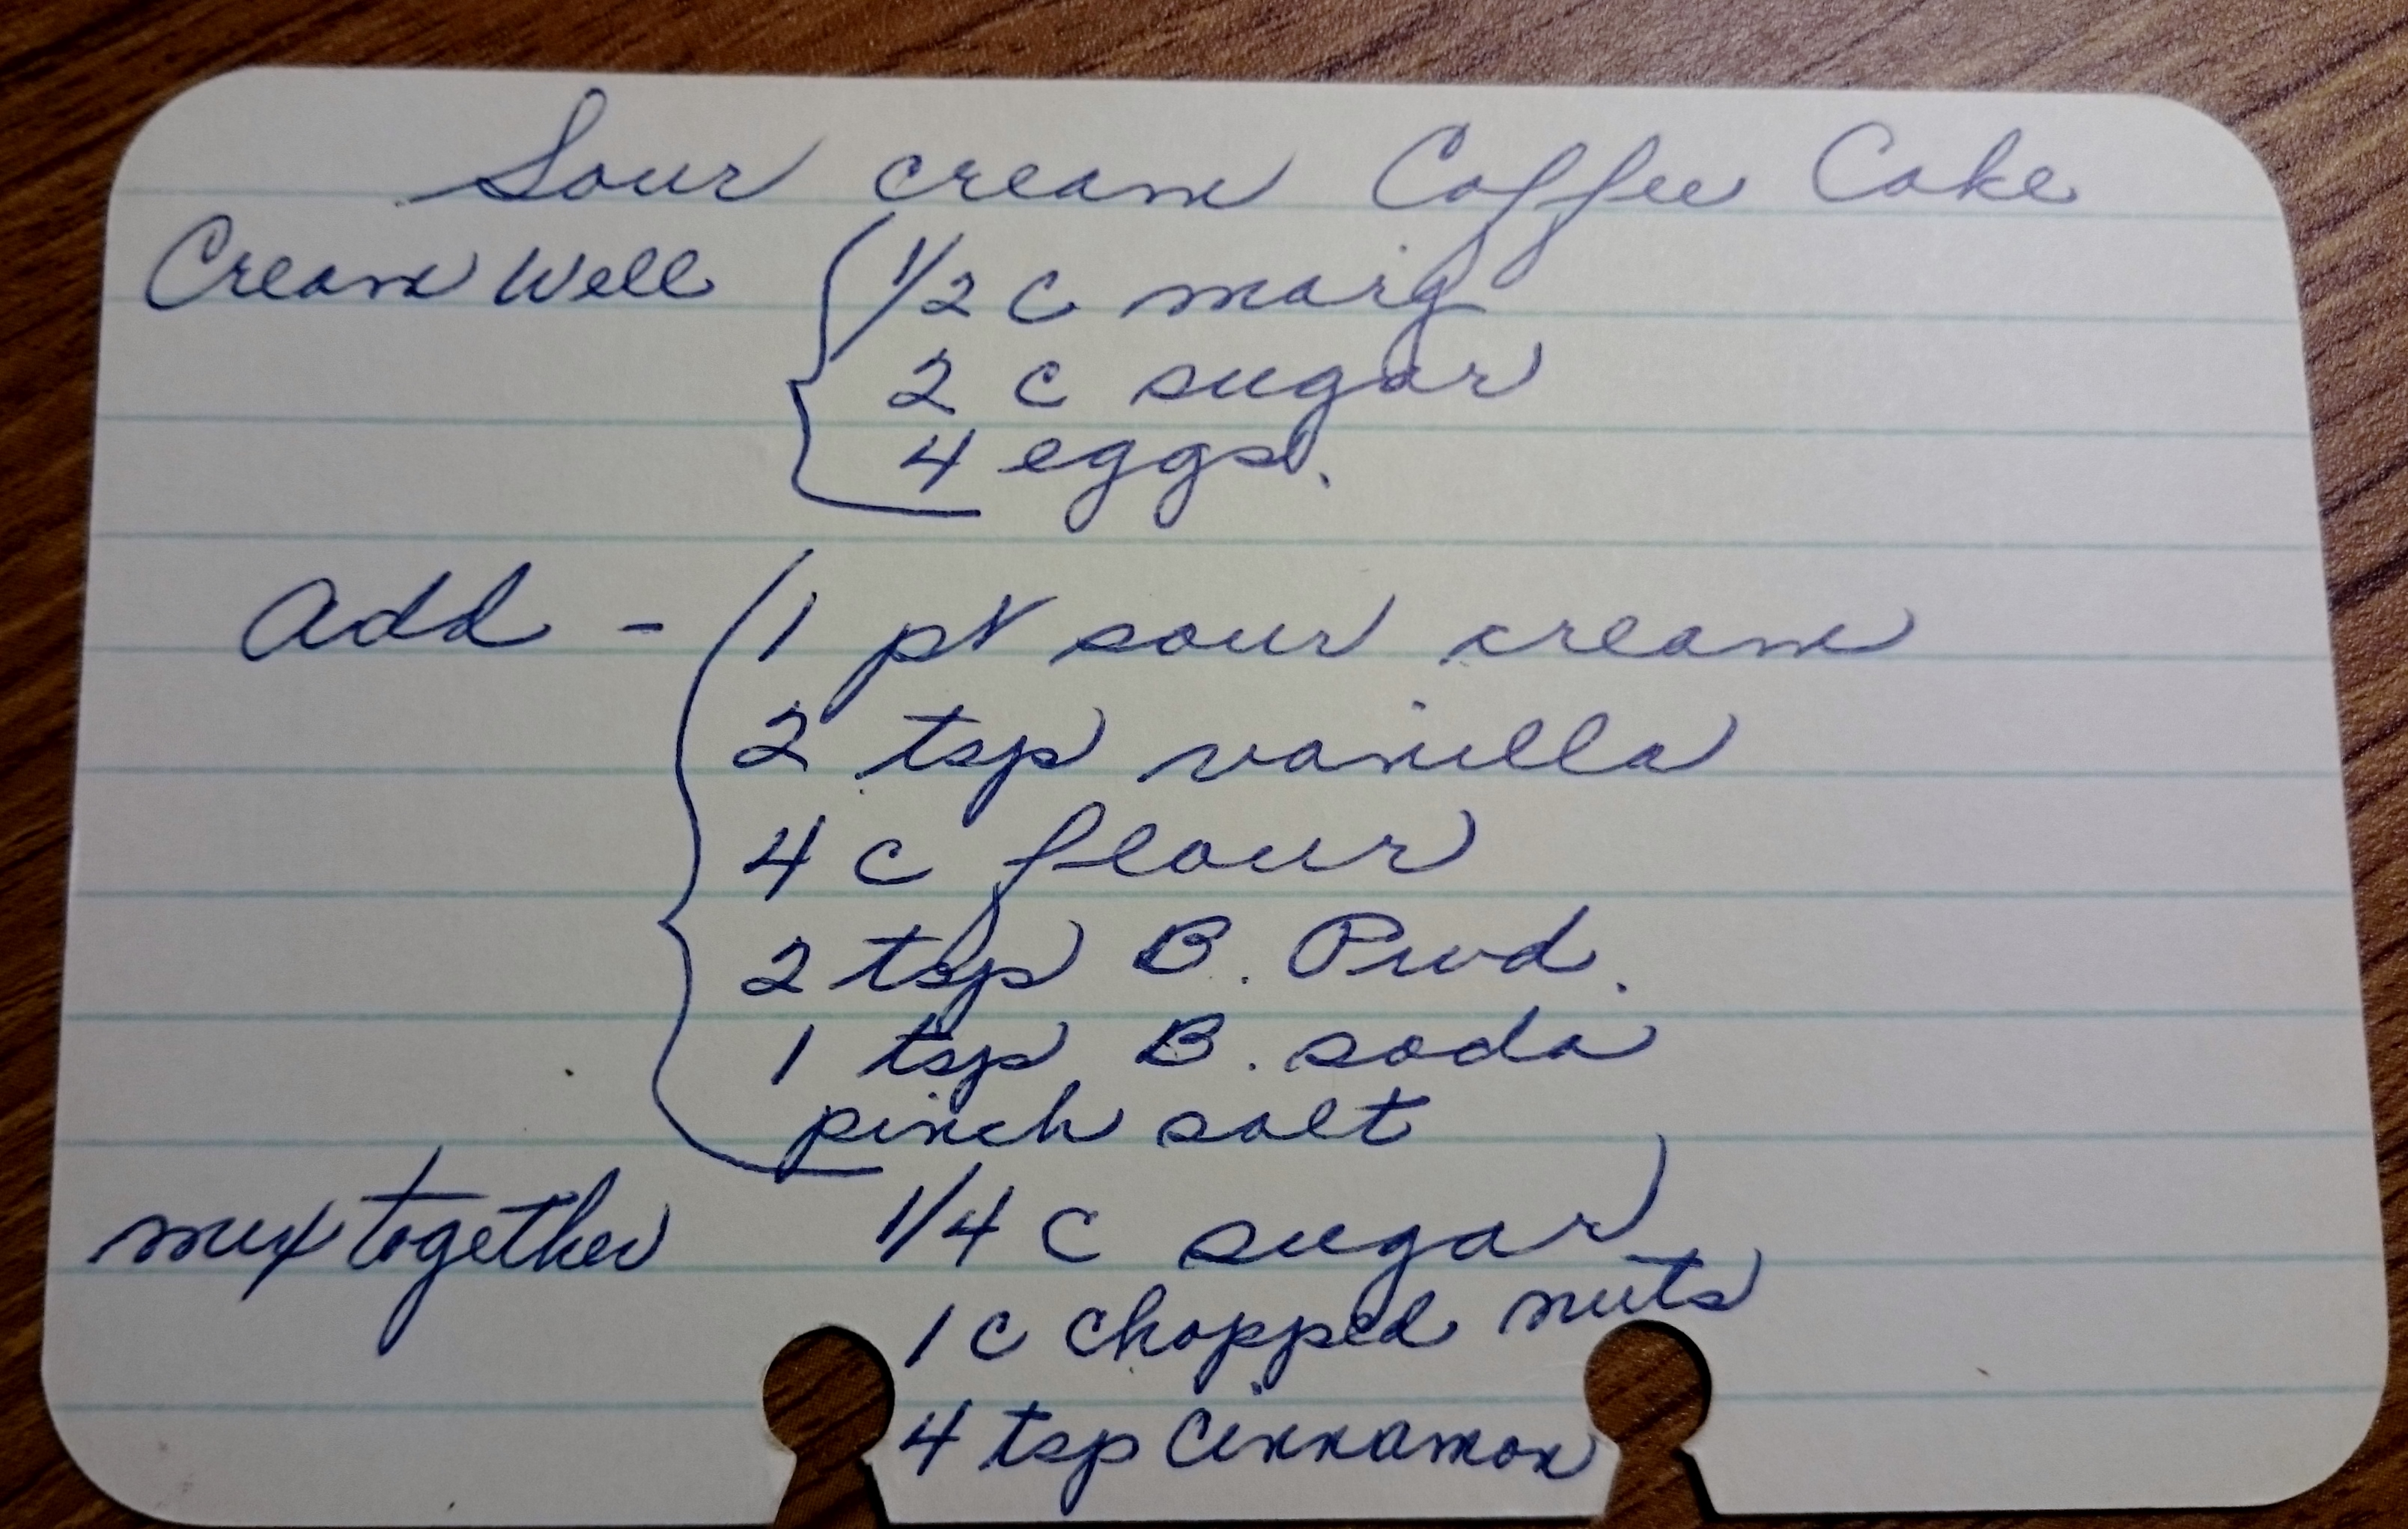 Sour cream Coffee Cake
Cream Well 1/2 c marg
2 c sugar
4 eggs.
add - 1 pt sour cream
2 tsp vanilla
4 c flour
2 tsp B. Pwd.
1 tsp B. soda
pinch salt
mix together 1/4 c sugar
1 c chopped nuts
4 tsp Cinnamon